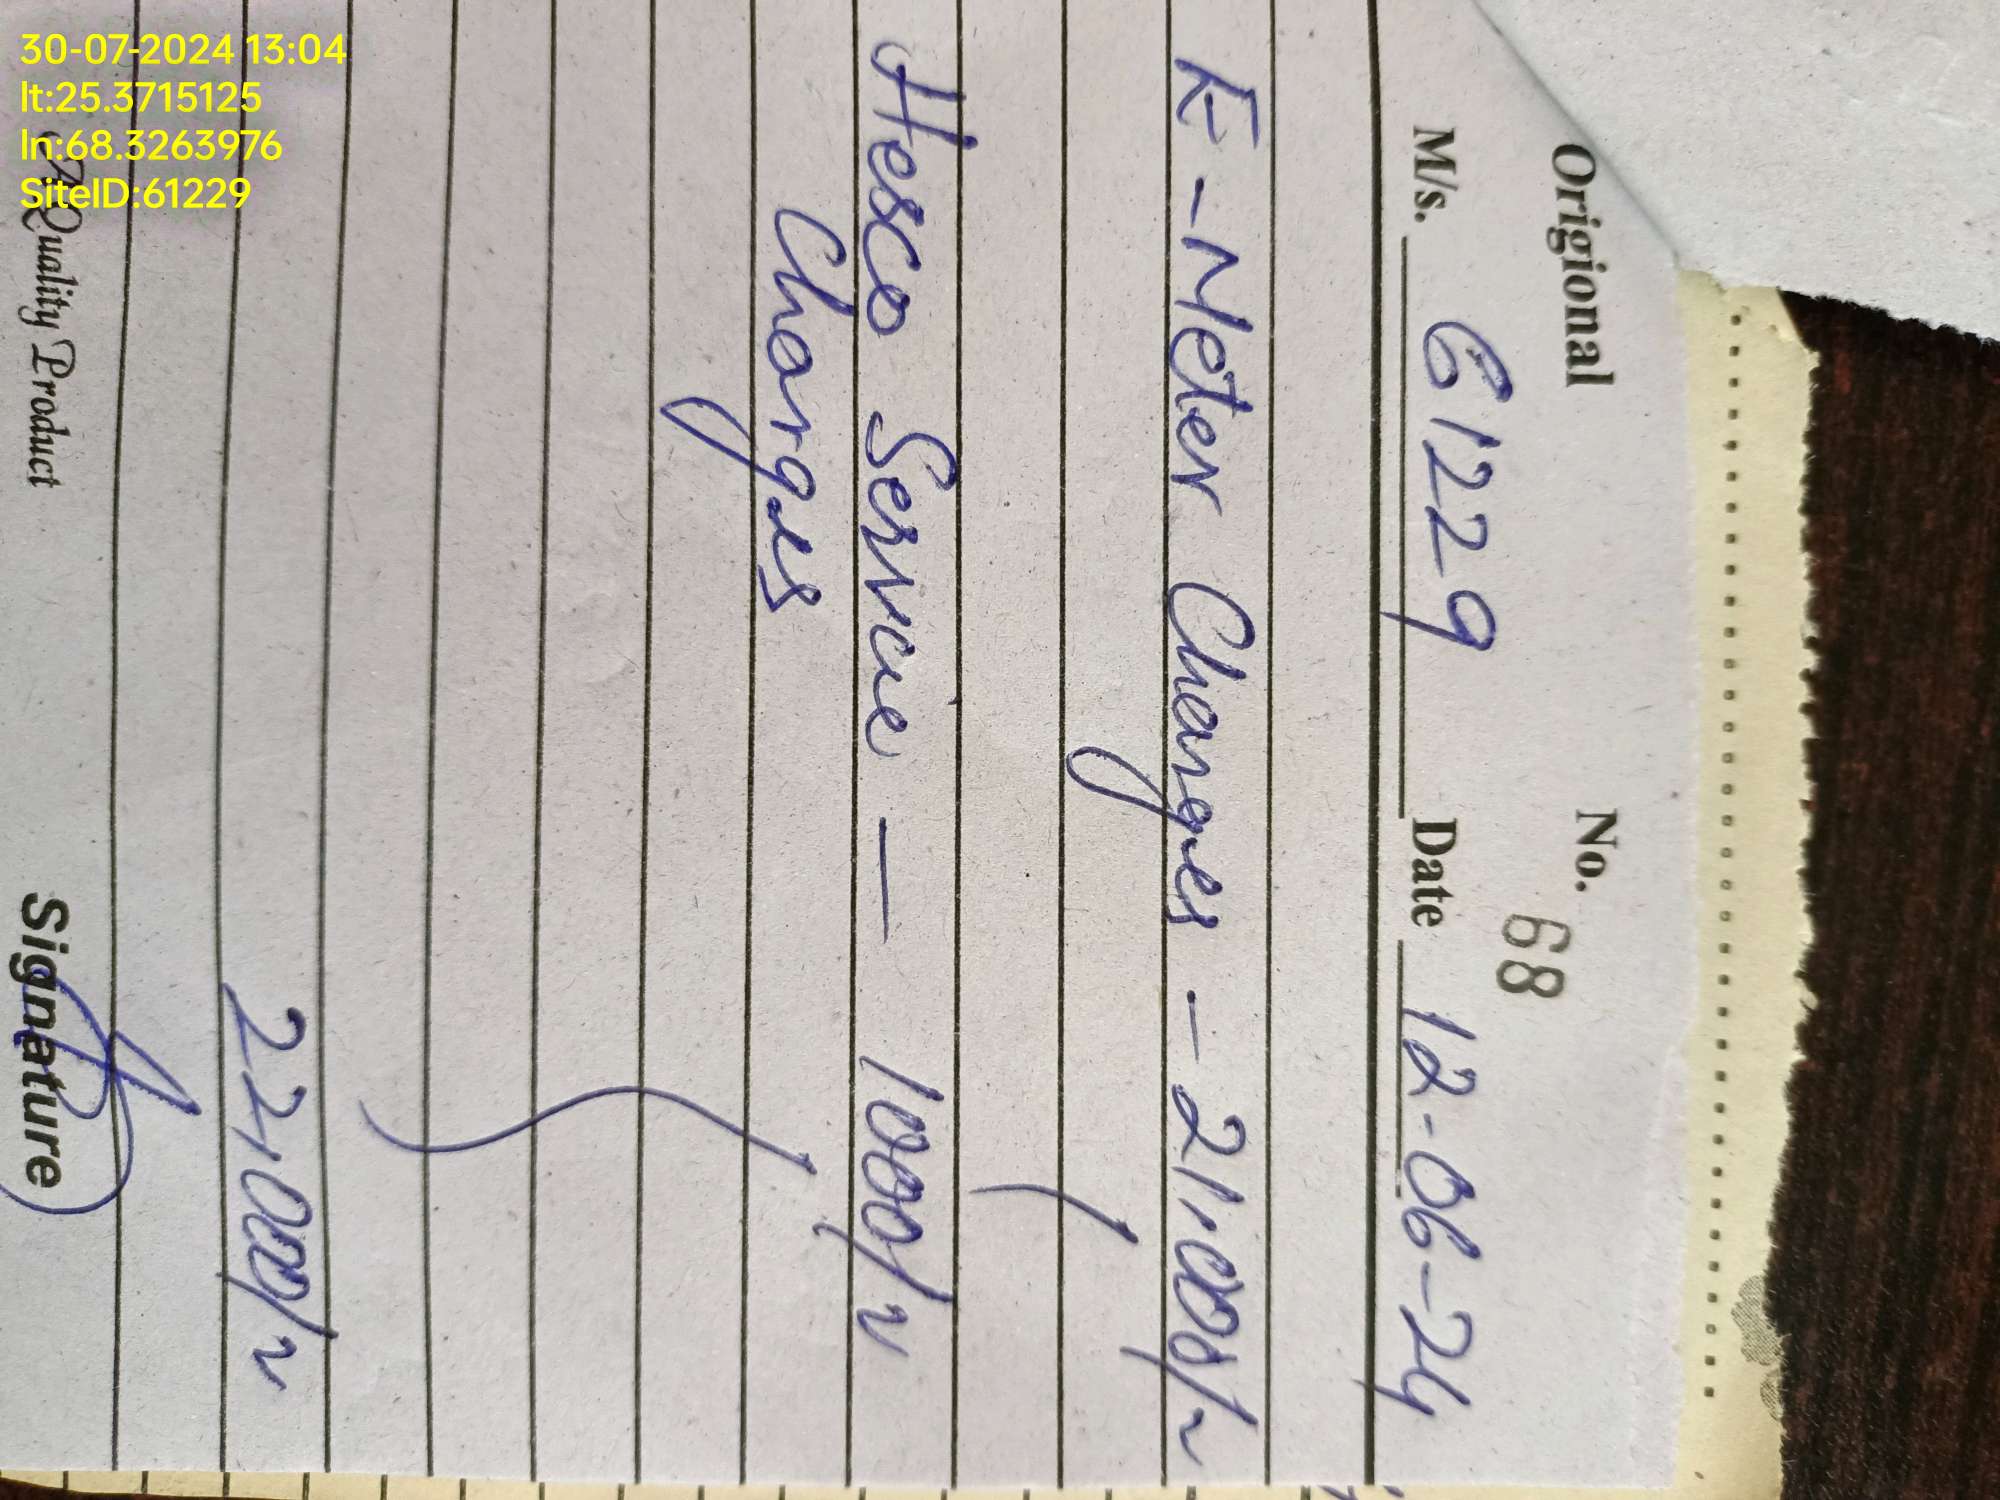 30-07-2024 13:04
lt:25.3715125
ln:68.3263976
SiteID:61229
Origional
No. 68
M/s. 61229 Date 12-06-24
E-Meter Charges - 21,000/~
Hesco Service — 1000/~
Charges
22,000/~
A Quality Product
Signature